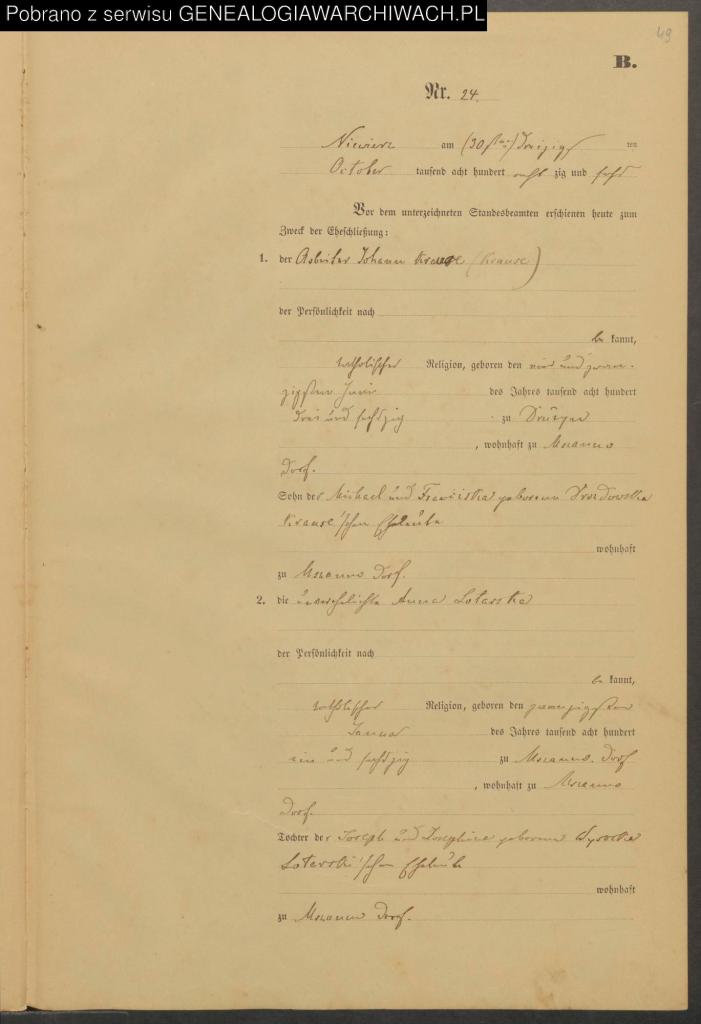 Pobrano z serwisu GENEALOGIAWARCHIWACH.PL
49
B.
Nr. 24.
am (30 ten) dreißig ten
October tausend acht hundert acht zig und sechs
Vor dem unterzeichneten Standesbeamten erschienen heute zum
Zweck der Eheschließung:
1. der Arbeiter Johann Krause (Krause)
der Persönlichkeit nach
be kannt,
katholischer Religion, geboren den vier und zwan-
zigsten des Jahres tausend acht hundert
drei und sechszig zu
, wohnhaft zu
Dorf.
Sohn der Michael und geborene
Krause'schen Eheleute
wohnhaft
zu Dorf.
2. die unverehelichte Anna
der Persönlichkeit nach
be kannt,
katholischer Religion, geboren den zwanzigsten
Januar des Jahres tausend acht hundert
ein und sechszig zu Dorf
, wohnhaft zu
Dorf.
Tochter der Joseph und Josephine geborene
'schen Eheleute
wohnhaft
zu Dorf.